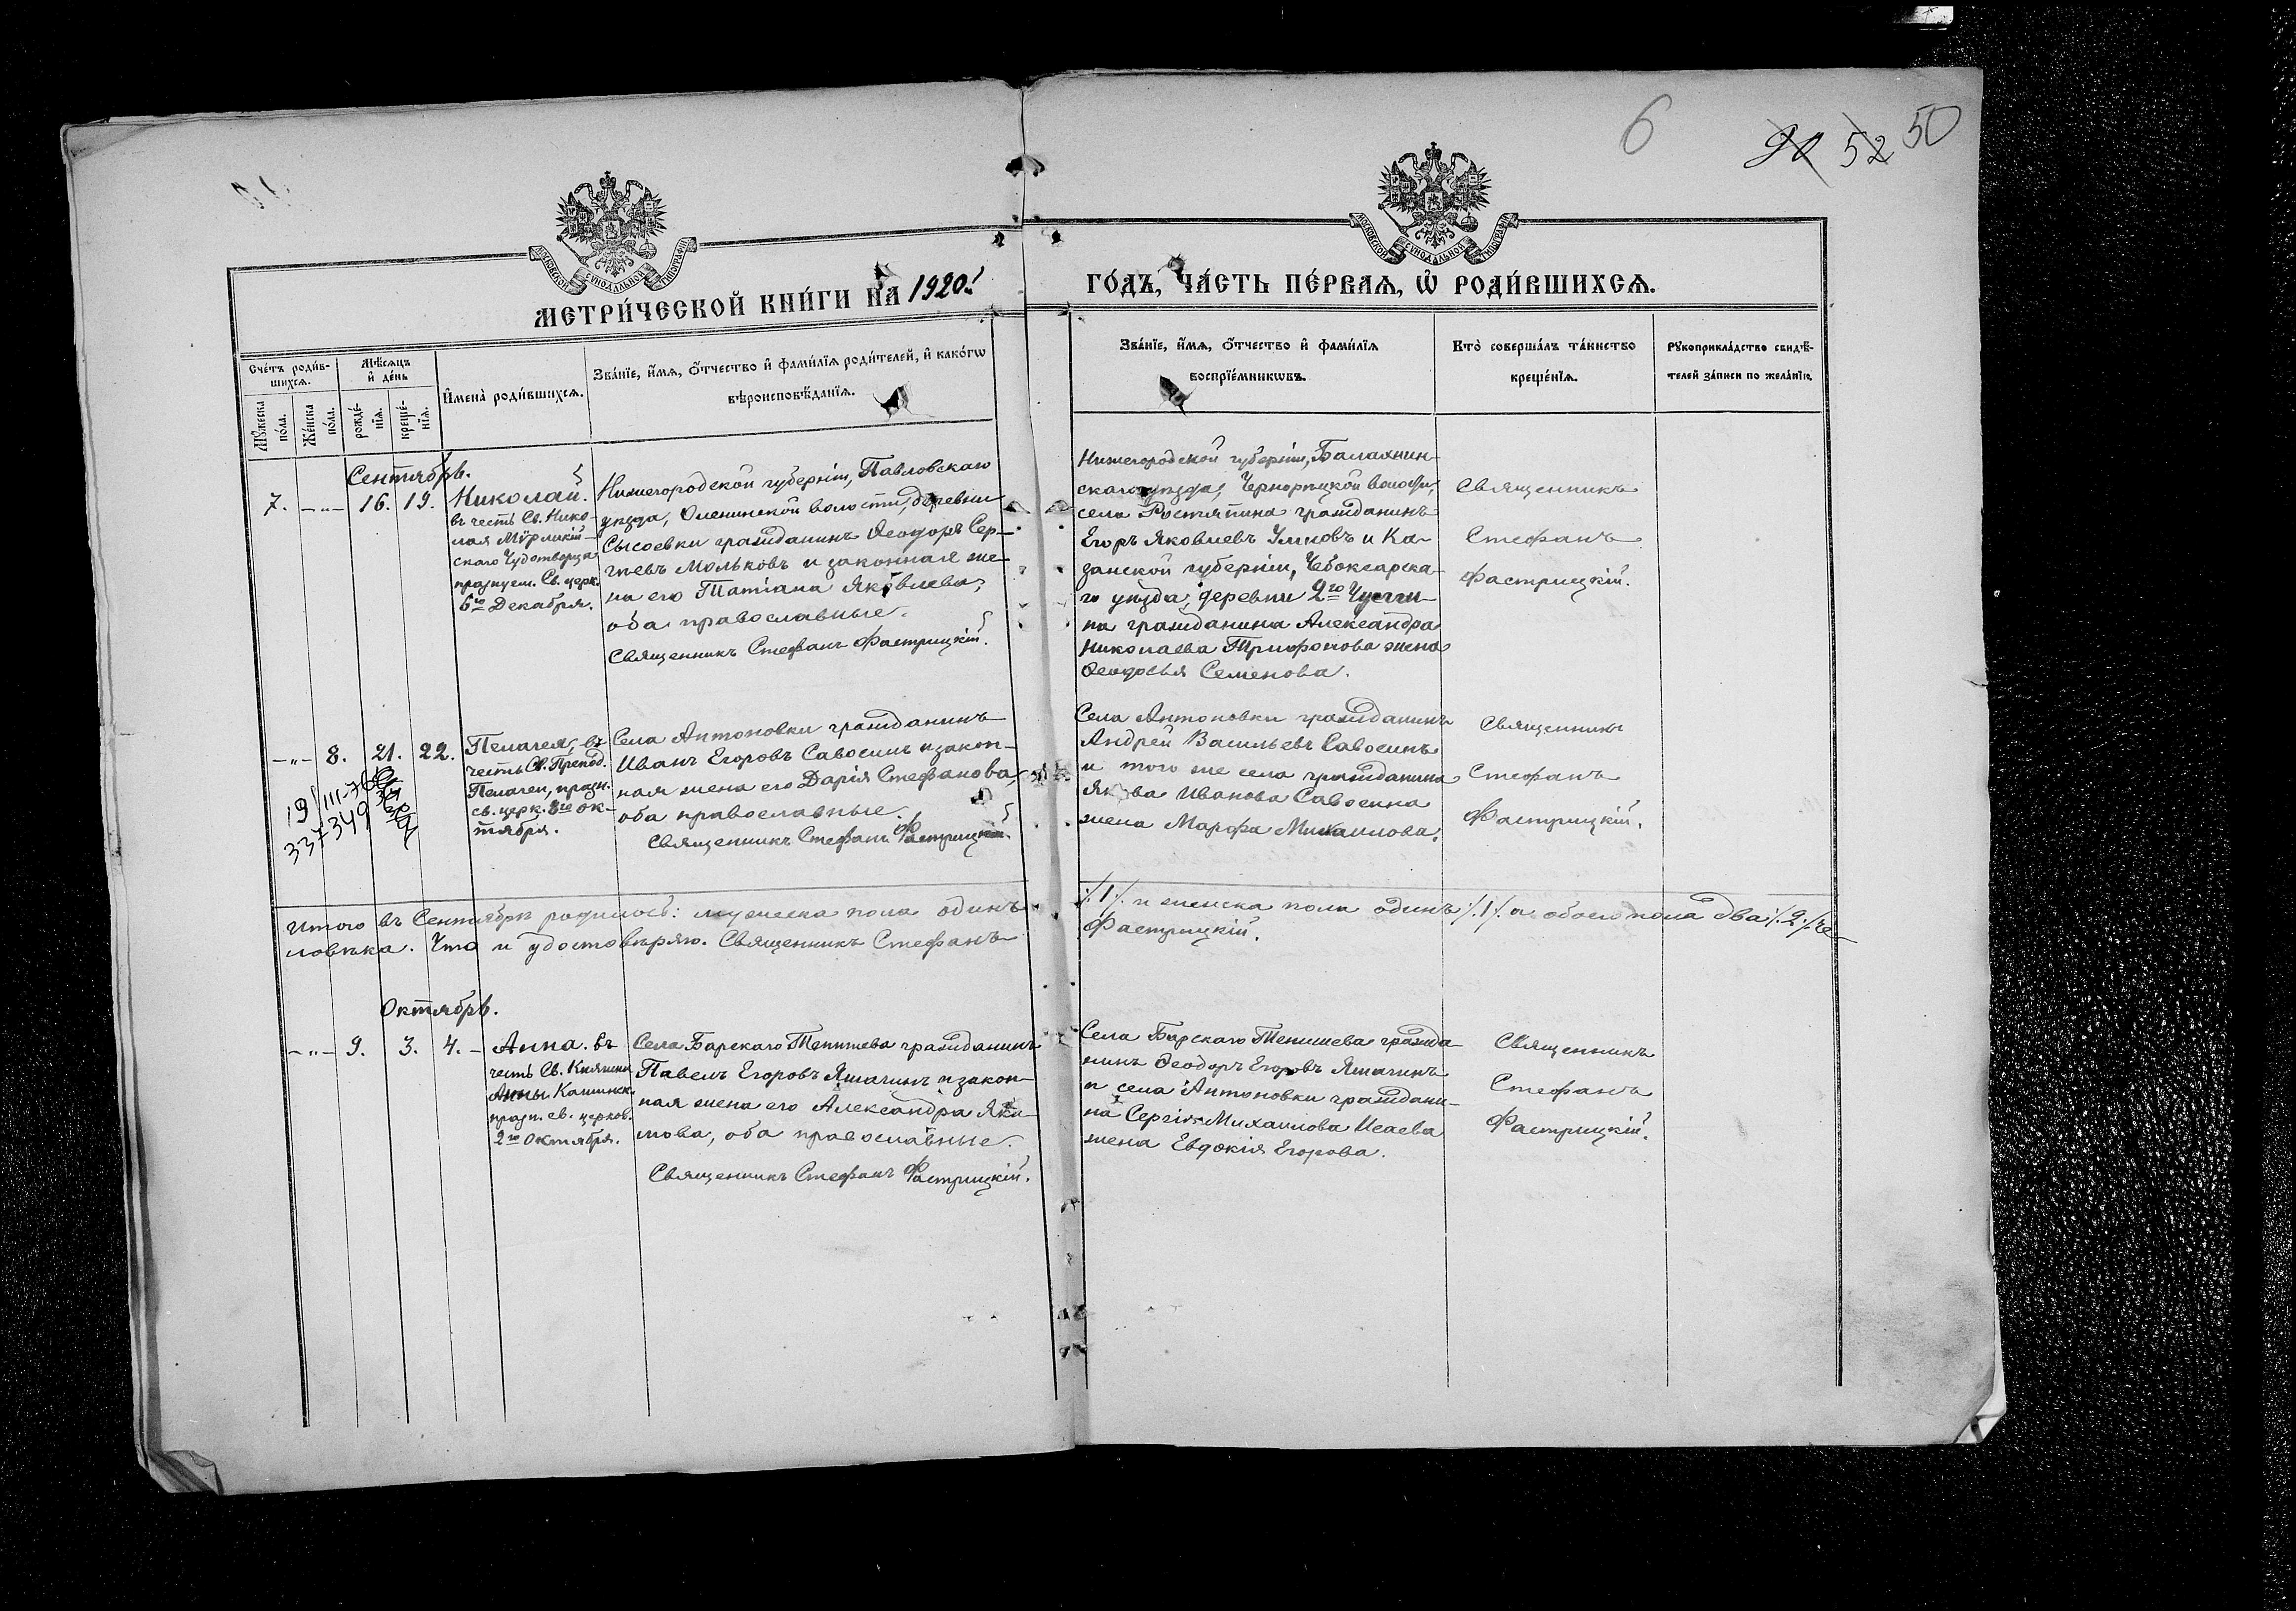 6
90 52 50
МОСКОВСКОЙ СѴНОДАЛЬНОЙ ТИПОГРАФІИ
МОСКОВСКОЙ СѴНОДАЛЬНОЙ ТИПОГРАФІИ
МЕТРИ́ЧЕСКОЙ КНИ́ГИ НА 1920й
ГО́ДЪ, ЧА́СТЬ ПЕ́РВАѦ, Ѽ РОДИ́ВШИХСѦ.
Сче́тъ роди́в-
шихсѧ.
Мѣ́сѧцъ
и҆ де́нь
И҆мена̀ роди́вшихсѧ.
Зва́нїе, и҆́мѧ, ѻ҆́тчество и҆ фами́лїѧ роди́телей, и҆ како́гѡ
вѣроисповѣ́данїѧ.
Мꙋ́жеска
по́ла.
Же́нска
по́ла.
рожде́-
нїѧ.
креще́-
нїѧ.
Зва́нїе, и҆́мѧ, ѻ҆́тчество и҆ фами́лїѧ
воспрїе́мникѡвъ.
Кто̀ соверша́лъ та́инство
креще́нїѧ.
Рꙋкоприкла́дство свидѣ́-
телей за́писи по жела́нїю.
Сентябрь.
7. –"– 16. 19.
Николай.
въ честь Св. Нико-
лая Мѵрликій-
скаго Чудотворца
празнуем. Св. церк.
6го Декабря.
Нижегородской губерніи, Павловскаго
уѣзда, Оленинской волости, деревни
Сысоевки гражданинъ Ѳеодоръ Сер-
гѣевъ Мольковъ и законная же-
на его Татіана Яковлева,
оба православные.
Священникъ Стефанъ Фастрицкій.
Нижегородской губерніи, Балахнин-
скаго уѣзда, Чернорѣцкой волости,
села Растяпина гражданинъ
Егоръ Яковлевъ Умновъ и Ка-
занской губерніи, Чебоксарска-
го уѣзда, деревни 2го
на гражданина Александра
Николаева Трифонова жена
Ѳеодосья Семенова.
Священникъ
Стефанъ
Фастрицкій.
–"– 8. 21. 22.
19/III-76
337349
Пелагея, въ
честь Св. Препод.
Пелагеи, празн.
св. церк. 8го ок-
тября.
Села Антоновки гражданинъ
Иванъ Егоровъ Савосинъ и закон-
ная жена его Дарія Стефанова,
оба православные.
Священникъ Стефанъ Фастрицкій.
Села Антоновки гражданинъ
Андрей Васильевъ Савосинъ
и того же села гражданина
Якова Иванова Савосина
жена Марфа Михаилова.
Священникъ
Стефанъ
Фастрицкій.
Итого въ Сентябрѣ родилось: мужеска пола одинъ ·/.1·/. и женска пола одинъ ·/.1·/. а обоего пола два ·/.2·/. че-
ловѣка. Что и удостовѣряю. Священникъ Стефанъ Фастрицкій.
Октябрь.
–"– 9. 3. 4. –
Анна. въ
честь Св. Княгини
Анны Кашинск.
празн. св. церков.
2го Октября.
Села Барскаго Тенишева гражданинъ
Павелъ Егоровъ Яшагинъ и закон-
ная жена его Александра Яки-
мова, оба православные.
Священникъ Стефанъ Фастрицкій.
Села Барскаго Тенишева гражда-
нинъ Ѳеодоръ Егоровъ Яшагинъ
и села Антоновки граждани-
на Сергія Михаилова Исаева
жена Евдокія Егорова.
Священникъ
Стефанъ
Фастрицкій.